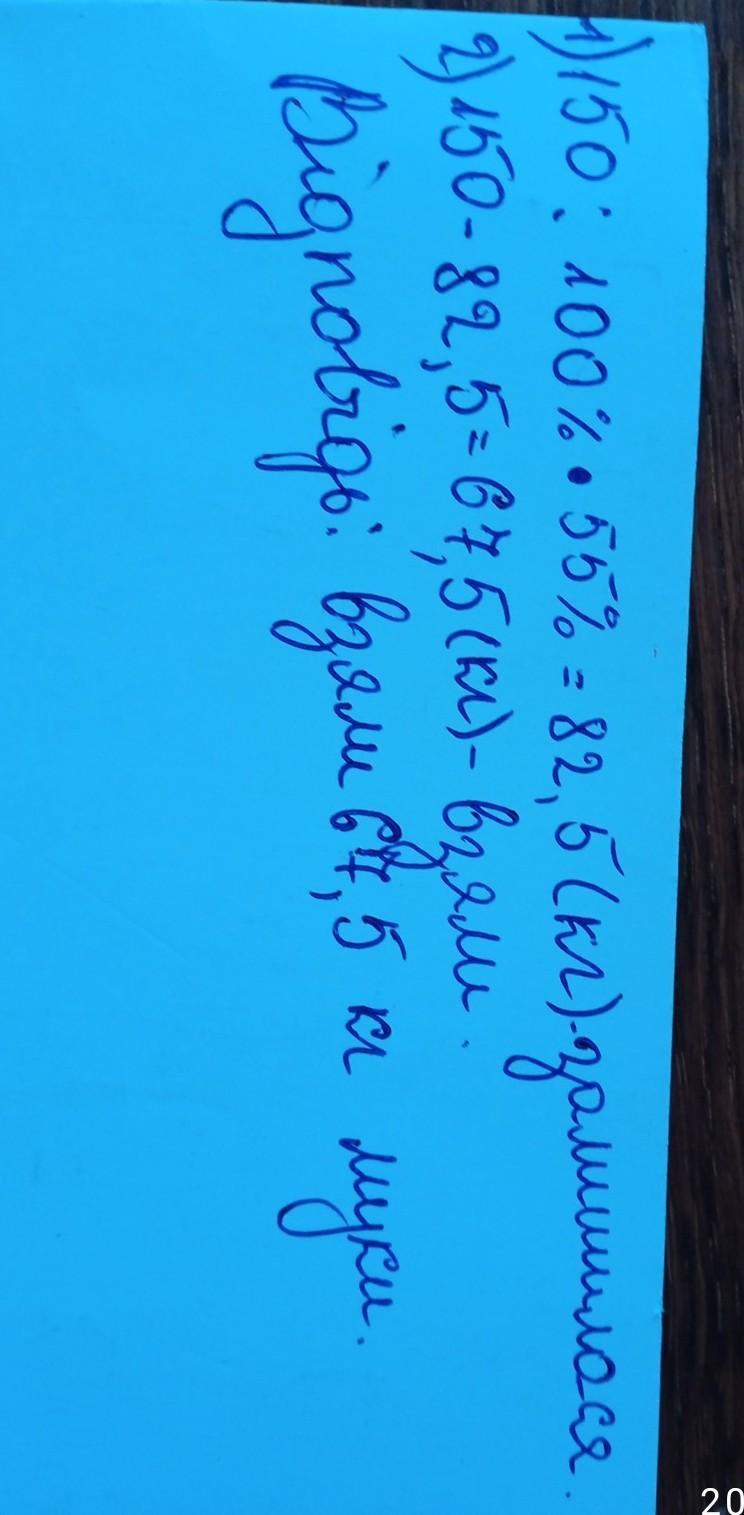 1) 150 : 100% • 55% = 82,5 (кг) - залишилося.
2) 150 - 82,5 = 67,5 (кг) - взяли.
Відповідь: взяли 67,5 кг муки.
20